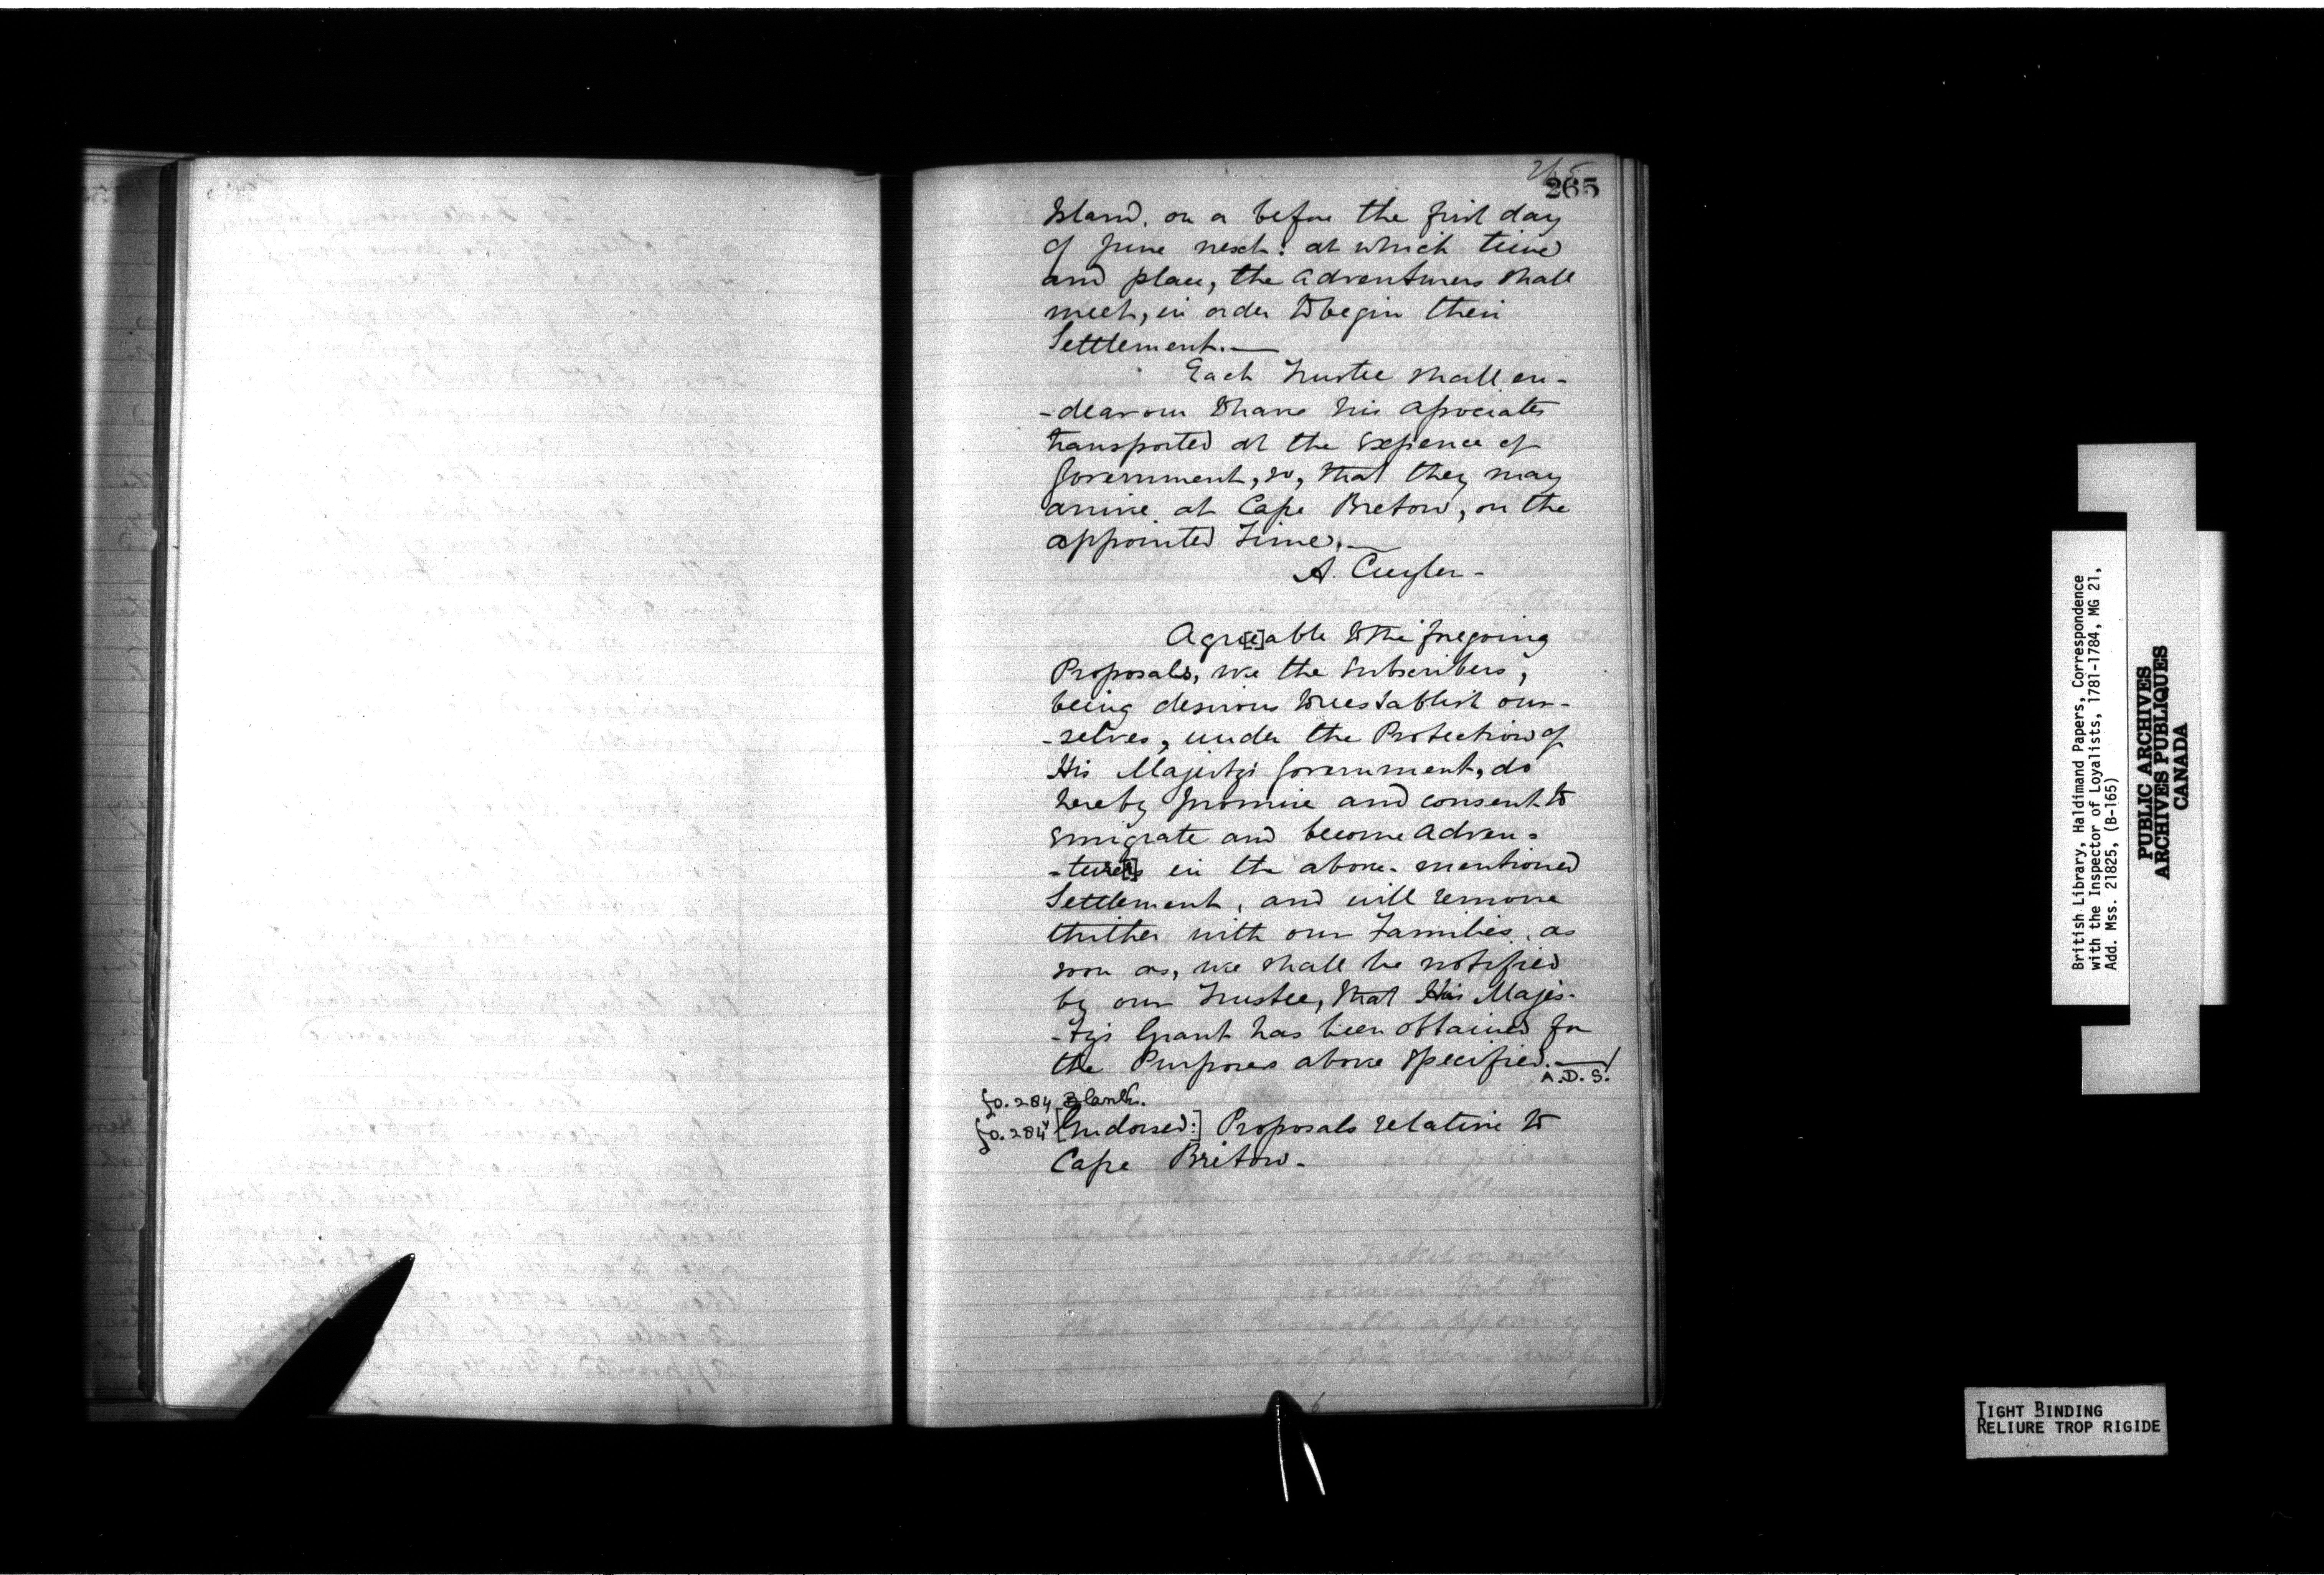 265
265
Island, on or before the first day
of June next: at which time
and place, the Adventurers shall
meet, in order to begin their
Settlement.—
Each Trustee shall en-
-deavour to have his Associates
transported at the Expence of
Government, so, that they may
arrive at Cape Breton, on the
appointed Time.—
A. Cuyler-
Agre[e]able to the foregoing
Proposals, we the Subscribers,
being desirous to reestablish our-
-selves, under the Protection of
His Majesty's Government, do
hereby promise and consent to
Emigrate and become Adven-
-ture[r]s in the above-mentioned
Settlement, and will remove
thither with our Families, as
soon as, we shall be notified
by our Trustee, that His Majes-
-ty's Grant has been obtained for
the Purposes above specified.—/
A.D.S.
fo. 284 Blank.
fo. 284v [Endorsed:] Proposals relative to
Cape Breton.
British Library, Haldimand Papers, Correspondence
with the Inspector of Loyalists, 1781-1784, MG 21,
Add. Mss. 21825, (B-165)
PUBLIC ARCHIVES
ARCHIVES PUBLIQUES
CANADA
TIGHT BINDING
RELIURE TROP RIGIDE